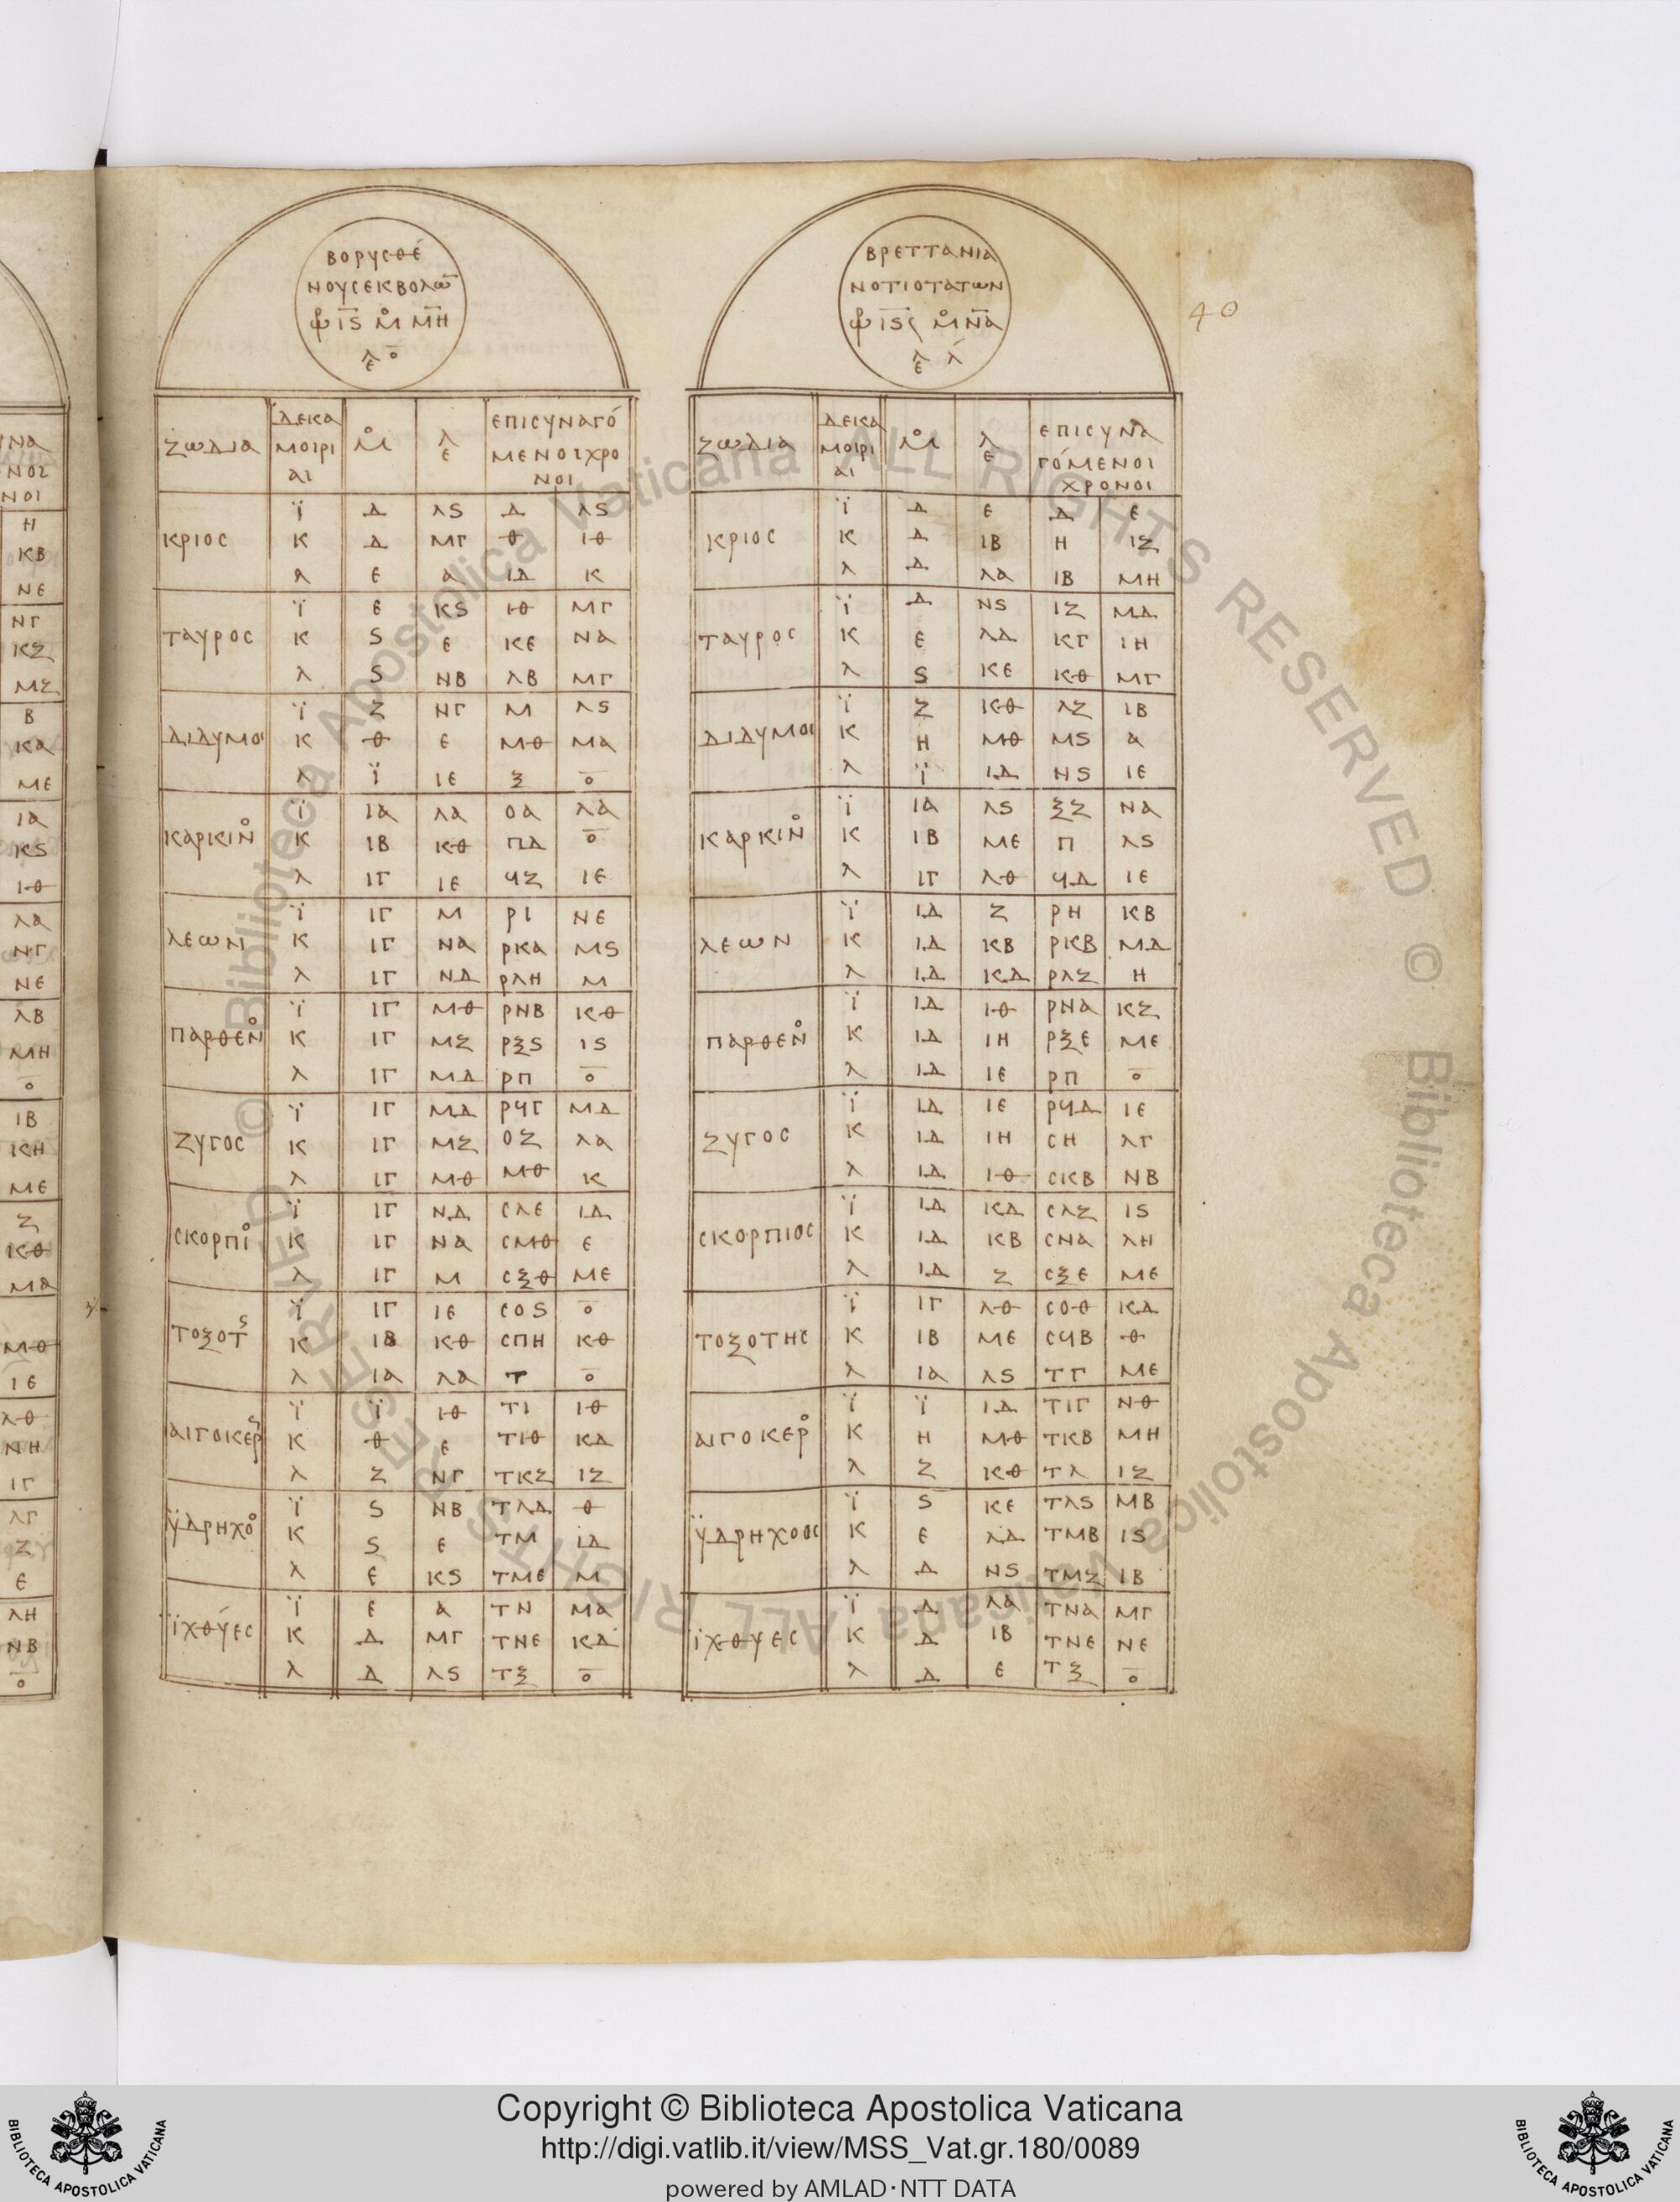 ΒΟΡΥϹΘΈ
ΝΟΥϹΕΚΒΟΛΩ̅
Ι̅Ϛ Μ̊ Μ̅Η̅
ΛΕ ο̅
ΖΩΔΙΑ ΔΕΚΑΜΟΙΡΙΑΙ Μ̊ ΛΕ ΕΠΙϹΥΝΑΓΌΜΕΝΟΙΧΡΟΝΟΙ
ΚΡΙΟϹ Ϊ Δ ΛϚ Δ ΛϚ
Κ Δ ΜΓ Θ ΙΘ
Λ Ε Α ΙΔ Κ
ΤΑΥΡΟϹ Ϊ Ε ΚϚ ΙΘ ΜΓ
Κ Ϛ Ε ΚΕ ΝΑ
Λ Ϛ ΝΒ ΛΒ ΜΓ
ΔΙΔΥΜΟΙ Ϊ Ζ ΝΓ Μ ΛϚ
Κ Θ Ε ΜΘ ΜΑ
Λ Ϊ ΙΕ Ξ ο̅
ΚΑΡΚΙΝ̊ Ϊ ΙΑ ΛΑ ΟΑ ΛΑ
Κ ΙΒ ΚΘ ΠΔ ο̅
Λ ΙΓ ΙΕ ϤΖ ΙΕ
ΛΕΩΝ Ϊ ΙΓ Μ ΡΙ ΝΕ
Κ ΙΓ ΝΑ ΡΚΑ ΜϚ
Λ ΙΓ ΝΔ ΡΛΗ Μ
ΠΑΡΘΕΝ̊ Ϊ ΙΓ ΜΘ ΡΝΒ ΚΘ
Κ ΙΓ ΜΖ ΡΞϚ ΙϚ
Λ ΙΓ ΜΔ ΡΠ ο̅
ΖΥΓΟϹ Ϊ ΙΓ ΜΔ ΡϤΓ ΜΔ
Κ ΙΓ ΜΖ ΟΖ ΛΑ
Λ ΙΓ ΜΘ ΜΘ Κ
ϹΚΟΡΠΙ̊ Ϊ ΙΓ ΝΔ ϹΛΕ ΙΔ
Κ ΙΓ ΝΑ ϹΜΘ Ε
Λ ΙΓ Μ ϹΞΘ ΜΕ
ΤΟΞΟΤϚ Ϊ ΙΓ ΙΕ ϹΟϚ ο̅
Κ ΙΒ ΚΘ ϹΠΗ ΚΘ
Λ ΙΑ ΛΑ Τ ο̅
ΑΙΓΟΚΕΡ Ϊ Ϊ ΙΘ ΤΙ ΙΘ
Κ Θ Ε ΤΙΘ ΚΔ
Λ Ζ ΝΓ ΤΚΖ ΙΖ
ΫΔΡΗΧΟ̊ Ϊ Ϛ ΝΒ ΤΛΔ Θ
Κ Ϛ Ε ΤΜ ΙΔ
Λ Ε ΚϚ ΤΜΕ Μ
ΪΧΘΎΕϹ Ϊ Ε Α ΤΝ ΜΑ
Κ Δ ΜΓ ΤΝΕ ΚΔ
Λ Δ ΛϚ ΤΞ ο̅
ΒΡΕΤΤΑΝΙΑ
ΝΟΤΙΟΤΑΤΩΝ
Ι̅Ϛ Μ̊ Ν̅Α
ΛΕ Λ́
ΖΩΔΙΑ ΔΕΚΑΜΟΙΡΙΑΙ Μ̊ ΛΕ ΕΠΙϹΥΝΑΓΌΜΕΝΟΙ ΧΡΟΝΟΙ
ΚΡΙΟϹ Ϊ Δ Ε Δ Ε
Κ Δ ΙΒ Η ΙΖ
Λ Δ ΛΑ ΙΒ ΜΗ
ΤΑΥΡΟϹ Ϊ Δ ΝϚ ΙΖ ΜΔ
Κ Ε ΛΔ ΚΓ ΙΗ
Λ Ϛ ΚΕ ΚΘ ΜΓ
ΔΙΔΥΜΟΙ Ϊ Ζ ΚΘ ΛΖ ΙΒ
Κ Η ΜΘ ΜϚ Α
Λ Ϊ ΙΔ ΝϚ ΙΕ
ΚΑΡΚΙΝ̊ Ϊ ΙΑ ΛϚ ΞΖ ΝΑ
Κ ΙΒ ΜΕ Π ΛϚ
Λ ΙΓ ΛΘ ϤΔ ΙΕ
ΛΕΩΝ Ϊ ΙΔ Ζ ΡΗ ΚΒ
Κ ΙΔ ΚΒ ΡΚΒ ΜΔ
Λ ΙΔ ΚΔ ΡΛΖ Η
ΠΑΡΘΕΝ̊ Ϊ ΙΔ ΙΘ ΡΝΑ ΚΖ
Κ ΙΔ ΙΗ ΡΞΕ ΜΕ
Λ ΙΔ ΙΕ ΡΠ ο̅
ΖΥΓΟϹ Ϊ ΙΔ ΙΕ ΡϤΔ ΙΕ
Κ ΙΔ ΙΗ ϹΗ ΛΓ
Λ ΙΔ ΙΘ ϹΚΒ ΝΒ
ϹΚΟΡΠΙΟϹ Ϊ ΙΔ ΚΔ ϹΛΖ ΙϚ
Κ ΙΔ ΚΒ ϹΝΑ ΛΗ
Λ ΙΔ Ζ ϹΞΕ ΜΕ
ΤΟΞΟΤΗϹ Ϊ ΙΓ ΛΘ ϹΟΘ ΚΔ
Κ ΙΒ ΜΕ ϹϤΒ Θ
Λ ΙΑ ΛϚ ΤΓ ΜΕ
ΑΙΓΟΚΕΡ̊ Ϊ Ϊ ΙΔ ΤΙΓ ΝΘ
Κ Η ΜΘ ΤΚΒ ΜΗ
Λ Ζ ΚΘ ΤΛ ΙΖ
ΫΔΡΗΧΟΟϹ Ϊ Ϛ ΚΕ ΤΛϚ ΜΒ
Κ Ε ΛΔ ΤΜΒ ΙϚ
Λ Δ ΝϚ ΤΜΖ ΙΒ
ΪΧΘΥΕϹ Ϊ Δ ΛΑ ΤΝΑ ΜΓ
Κ Δ ΙΒ ΤΝΕ ΝΕ
Λ Δ Ε ΤΞ ο̅
40
ΙΝΑ
ΝΟΙ
ΝΟΙ
Η
ΚΒ
ΝΕ
ΝΓ
ΚΖ
ΜΖ
Β
ΚΑ
ΜΕ
ΙΑ
ΚϚ
ΙΘ
ΛΑ
ΝΓ
ΝΕ
ΛΒ
ΜΗ
ο̅
ΙΒ
ΚΗ
ΜΕ
Ζ
ΚΘ
ΜΑ
ΜΘ
ΙΕ
ΛΘ
ΝΗ
ΙΓ
ΛΓ
Ζ
Ε
ΛΗ
ΝΒ
ο̅
© Biblioteca Apostolica Vaticana ALL RIGHTS RESERVED © Biblioteca Apostolica Vaticana ALL RIGHTS RESERVED
Copyright © Biblioteca Apostolica Vaticana
http://digi.vatlib.it/view/MSS_Vat.gr.180/0089
powered by AMLAD・NTT DATA
BIBLIOTECA APOSTOLICA VATICANA
BIBLIOTECA APOSTOLICA VATICANA